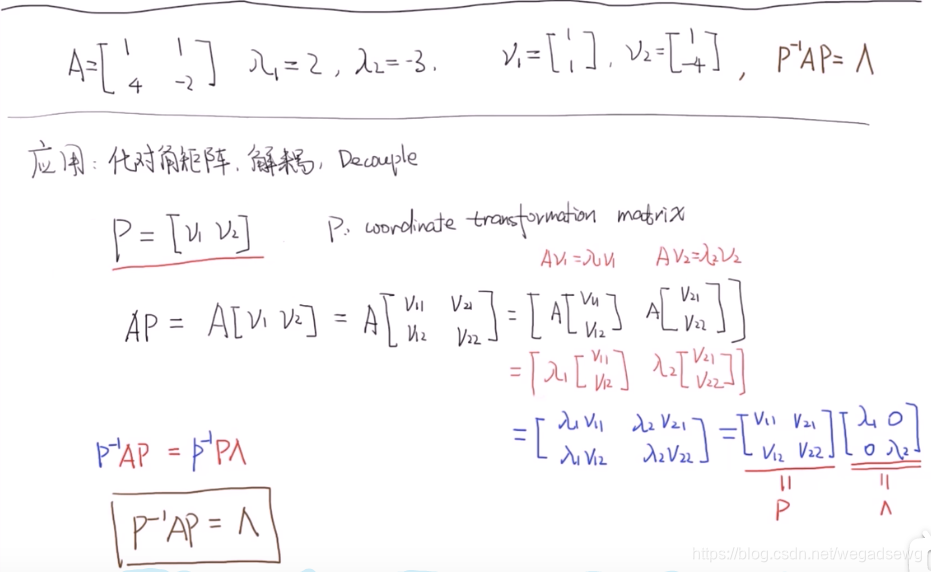 A=[1 1; 4 -2] λ₁=2, λ₂=-3. V₁=[1; 1], V₂=[1; -4], P⁻¹AP=Λ
应用:化对角矩阵.解耦, Decouple
P=[V₁ V₂] P. coordinate transformation matrix
AV₁=λ₁V₁ AV₂=λ₂V₂
AP = A[V₁ V₂] = A[V₁₁ V₂₁; V₁₂ V₂₂] = [A[V₁₁; V₁₂] A[V₂₁; V₂₂]]
=[λ₁[V₁₁; V₁₂] λ₂[V₂₁; V₂₂]]
=[λ₁V₁₁ λ₂V₂₁; λ₁V₁₂ λ₂V₂₂]=[V₁₁ V₂₁; V₁₂ V₂₂][λ₁ 0; 0 λ₂]
= =
P Λ
P⁻¹AP = P⁻¹PΛ
P⁻¹AP = Λ
https://blog.csdn.net/wegadsewg